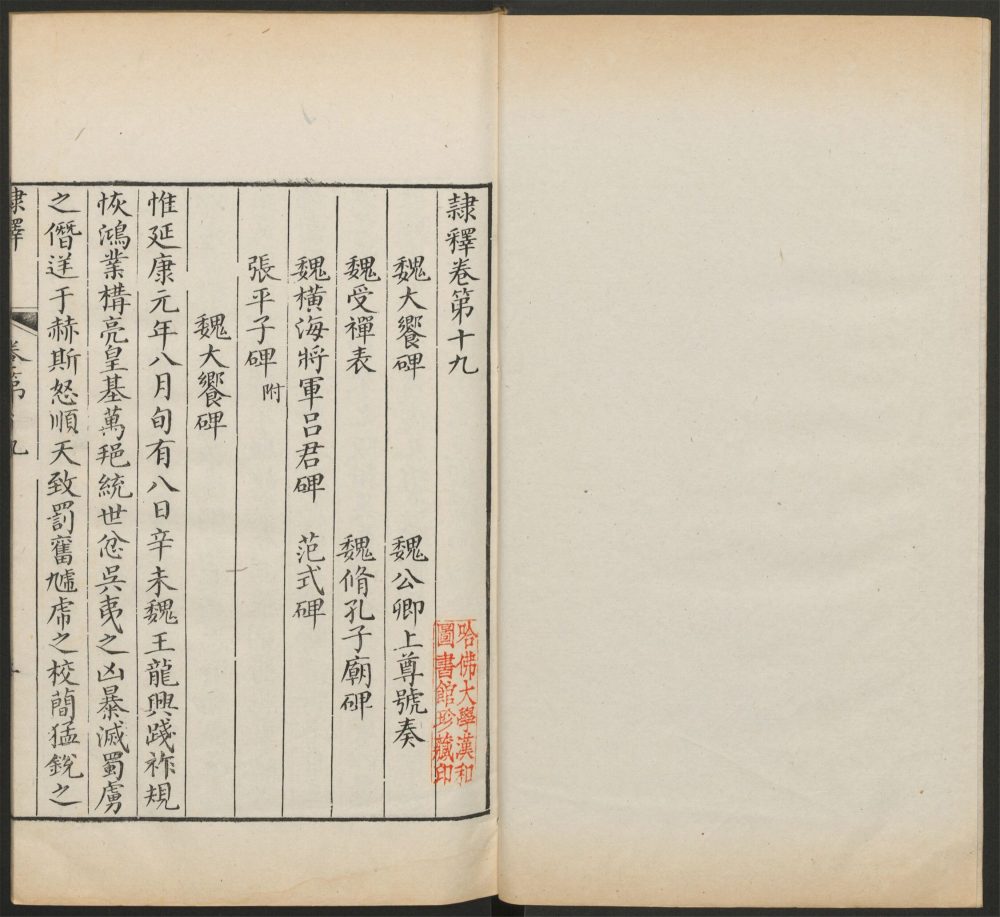 隷釋卷第十九
魏大饗碑 魏公卿上尊號奏
魏受禪表 魏脩孔子廟碑
魏橫海將軍呂君碑 范式碑
張平子碑附
魏大饗碑
惟延康元年八月旬有八日辛未魏王龍興踐祚規
恢鴻業構亮皇基萬邦統世忿吳夷之凶暴滅蜀虜
之僭逆于赫斯怒順天致罰奮虓虎之校簡猛銳之
隷釋 卷第十九
哈佛大學漢和
圖書館珍藏印